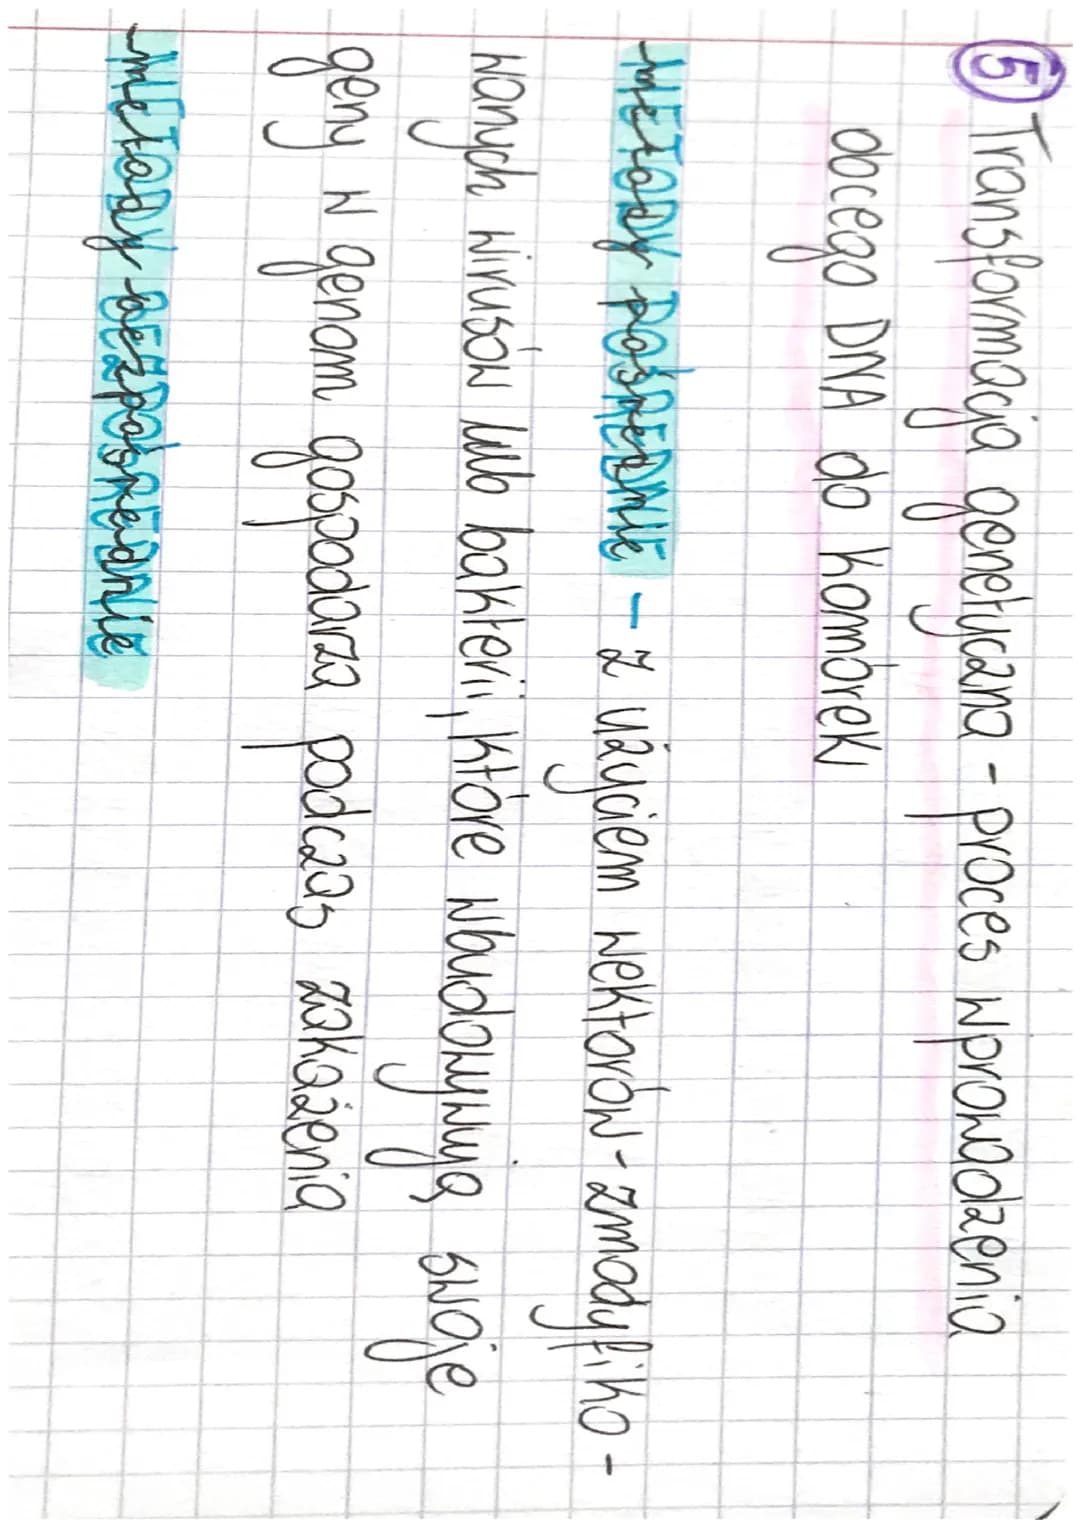 5 Transformacja genetyczna - proces wprowadzenia
obcego DNA do komórek
METODY POŚREDNIE - z użyciem wektorów - zmodyfiko-
wanych wirusów lub bakterii, które wbudowywują swoje
geny w genom gospodarza podczas zakażenia
METODY BEZPOŚREDNIE